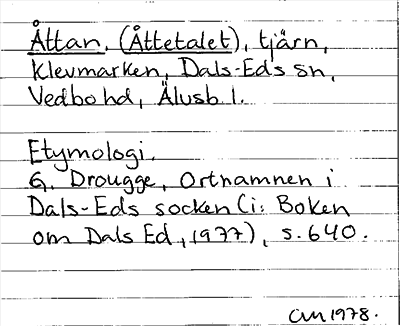 Åttan, (Åttetalet), tjärn,
Klevmarken, Dals-Eds sn,
Vedbo hd, Älvsb l.
Etymologi.
G. Drougge, Ortnamnen i
Dals-Eds socken (i: Boken
om Dals Ed, 1977), s. 640.
1978.